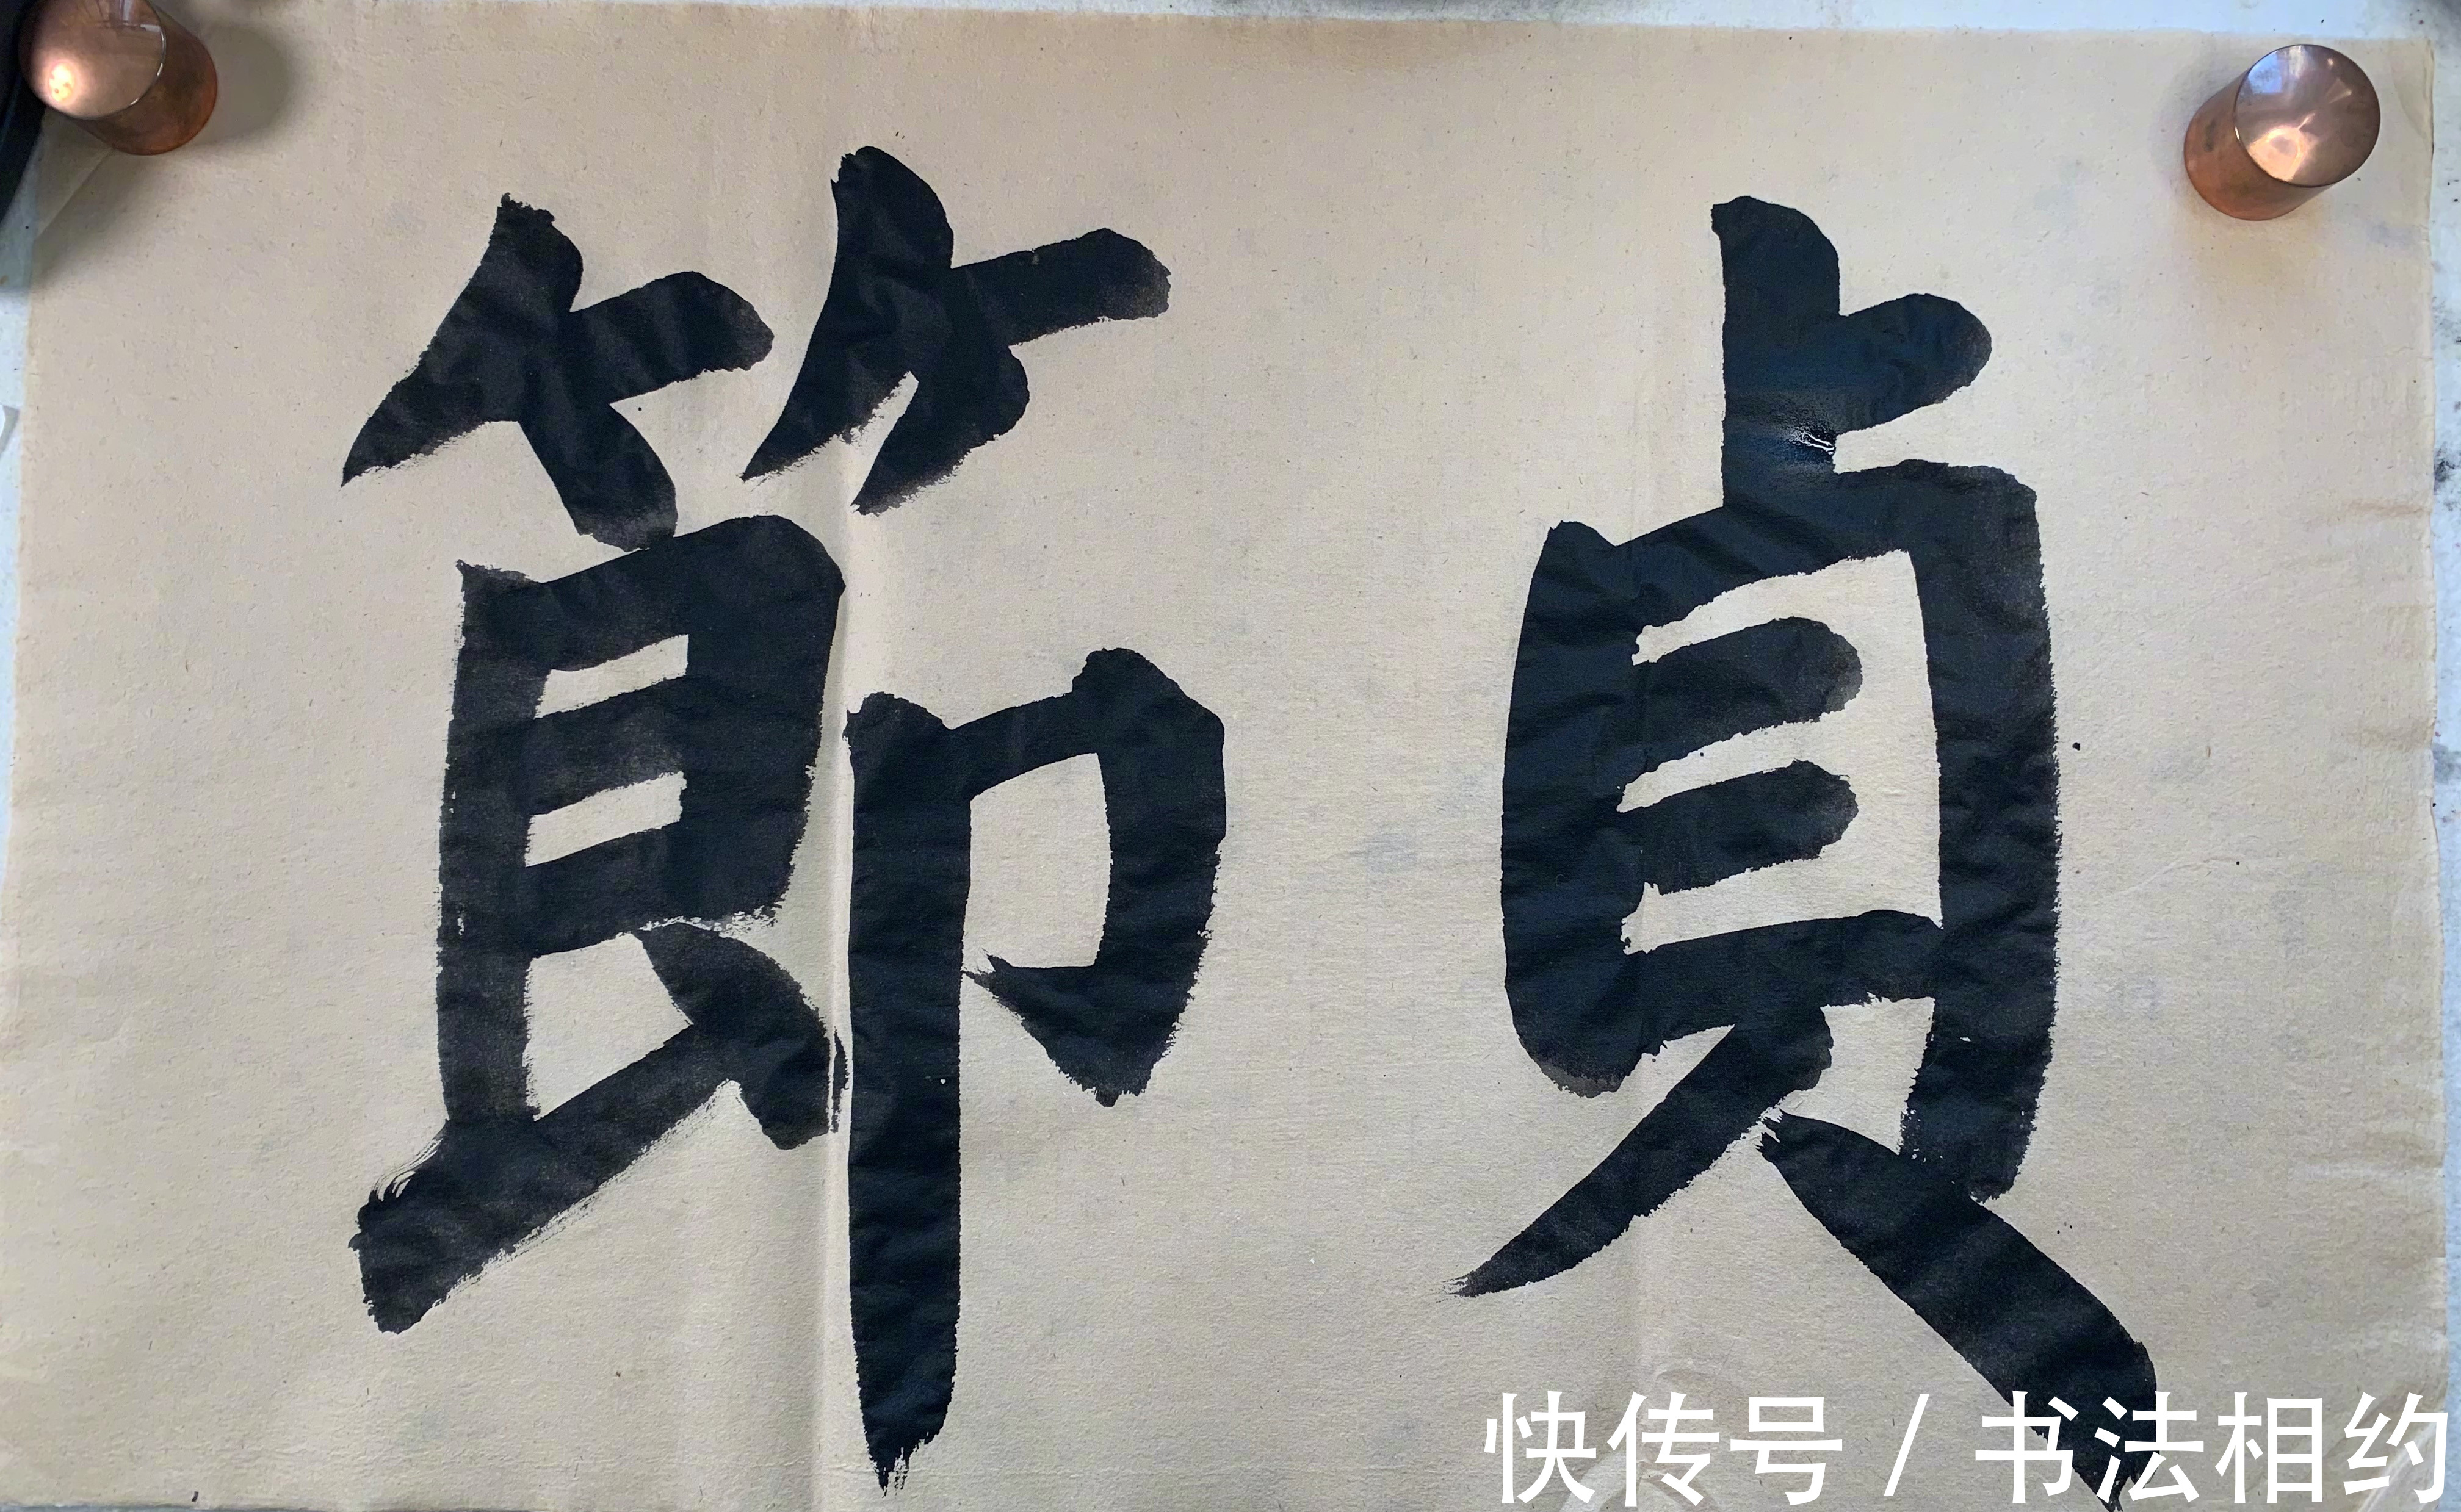 貞節
快传号 / 书法相约